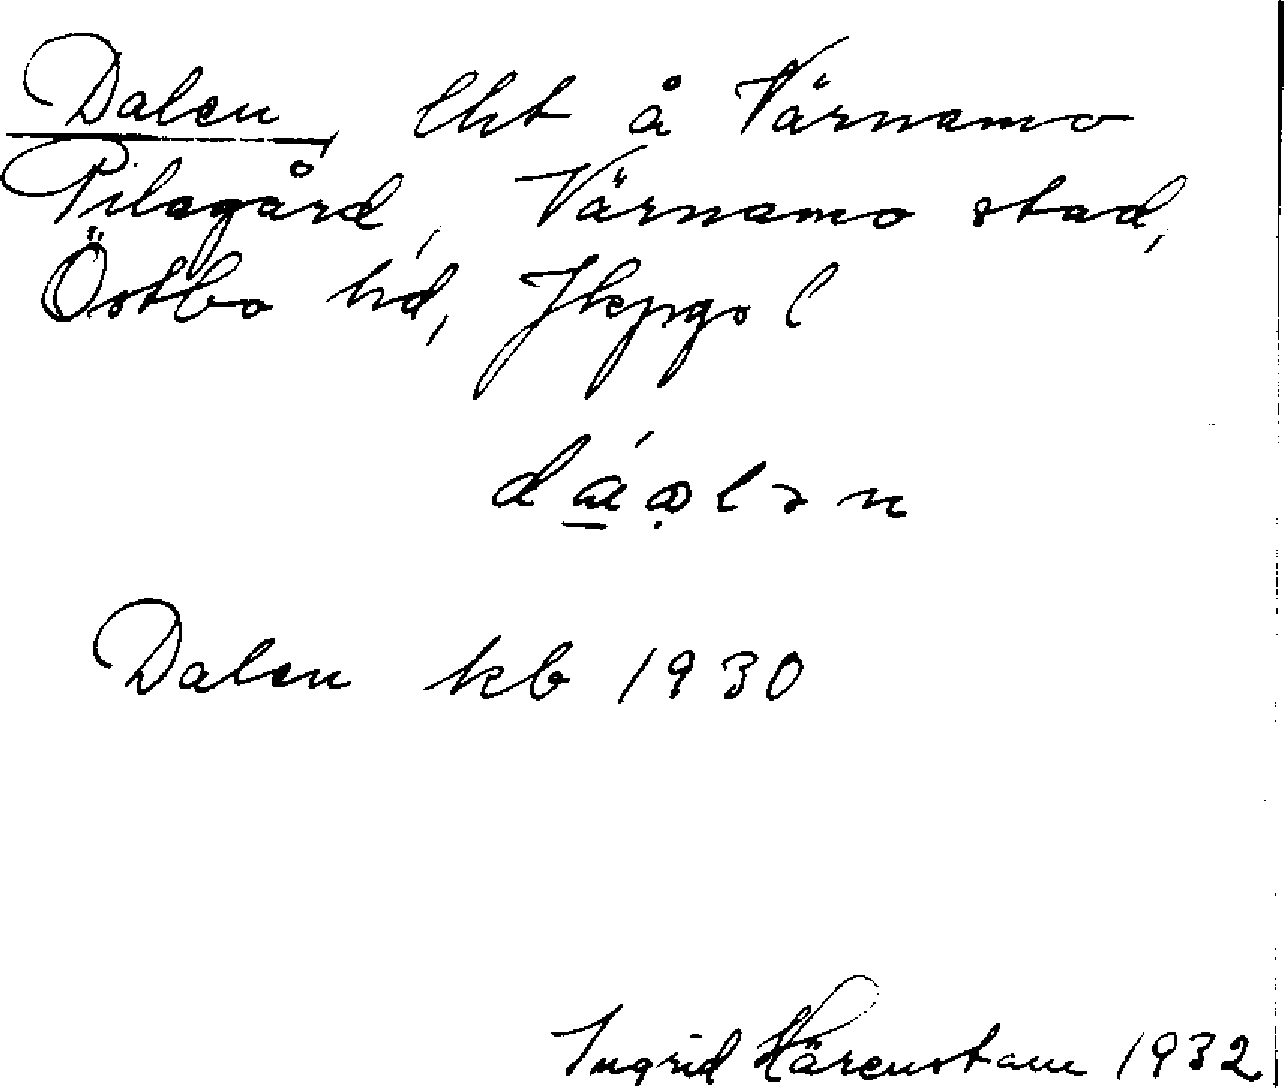 Dalen, lht å Värnamo
Pilagård, Värnamo stad,
Östbo hd, Jkpgs l
Dalen kb 1930
Ingrid Härenstam 1932